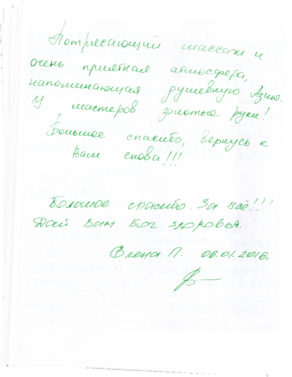 Потрясающий массаж и
очень приятная атмосфера,
напоминающая душевную Азию.
У мастеров золотые руки!
Большое спасибо, вернусь к
Вам снова!!!
Большое спасибо. За всё!!!
Дай Вам Бог здоровья.
Елена П. 06.01.2016.